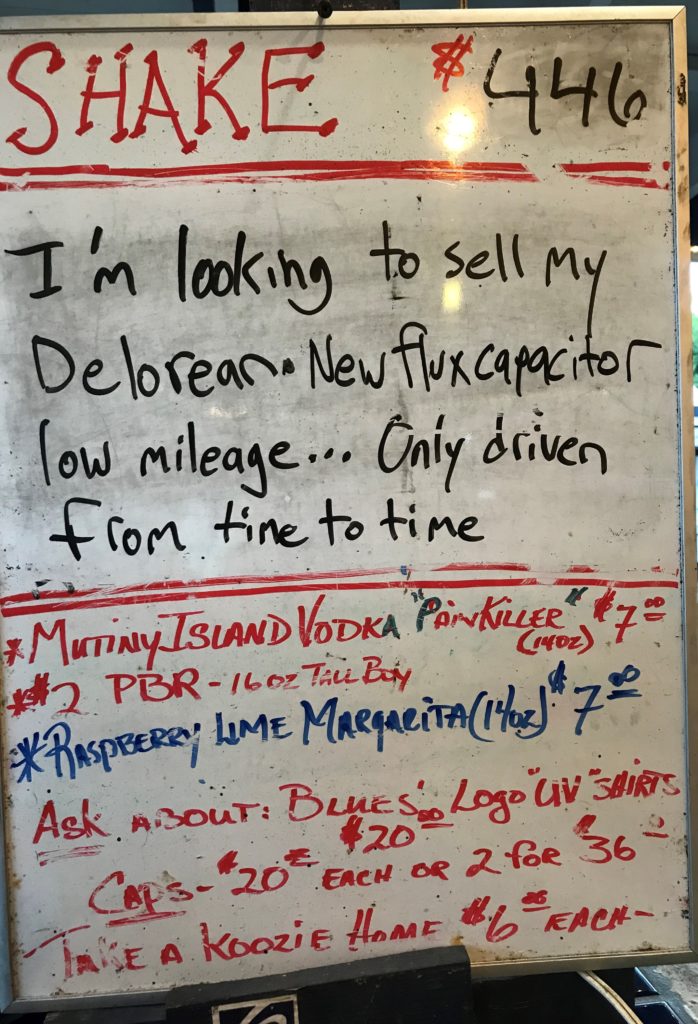 SHAKE $446
I'm looking to sell my
Delorean. New flux capacitor
low mileage... Only driven
from tine to time
*MUTINY ISLAND VODKA "PAINKILLER" $7.00
(14oz)
*$2 PBR - 16oz TALL BOY
*RASPBERRY LIME MARGARITA (14oz) $7.00
ASK ABOUT: BLUES' LOGO "UV" SHIRTS
$20.00
CAPS - $20 EACH OR 2 for $36
TAKE A KOOZIE HOME $6.00 EACH-